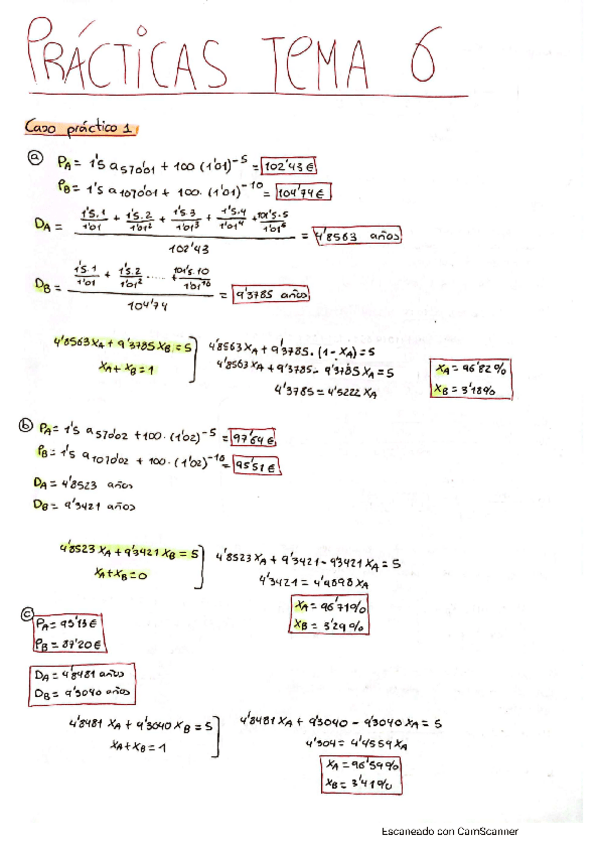 PRÁCTICAS TEMA 6
Caso práctico 1
a) PA = 1'5 a5⌉0'01 + 100 (1'01)^-5 = 102'43 €
PB = 1'5 a10⌉0'01 + 100 · (1'01)^-10 = 104'74 €
DA = (1'5·1/1'01 + 1'5·2/1'01² + 1'5·3/1'01³ + 1'5·4/1'01⁴ + 101'5·5/1'01⁵) / 102'43 = 4'8563 años
DB = (1'5·1/1'01 + 1'5·2/1'01² ..... + 101'5·10/1'01¹⁰) / 104'74 = 9'3785 años
4'8563 XA + 9'3785 XB = 5
XA + XB = 1
4'8563 XA + 9'3785 · (1 - XA) = 5
4'8563 XA + 9'3785 - 9'3785 XA = 5
4'3785 = 4'5222 XA
XA = 96'82 %
XB = 3'18 %
b) PA = 1'5 a5⌉0'02 + 100 · (1'02)^-5 = 97'64 €
PB = 1'5 a10⌉0'02 + 100 · (1'02)^-10 = 95'51 €
DA = 4'8523 años
DB = 9'3421 años
4'8523 XA + 9'3421 XB = 5
XA + XB = 0
4'8523 XA + 9'3421 - 9'3421 XA = 5
4'3421 = 4'4898 XA
XA = 96'71 %
XB = 3'29 %
c) PA = 93'13 €
PB = 87'20 €
DA = 4'8481 años
DB = 9'3040 años
4'8481 XA + 9'3040 XB = 5
XA + XB = 1
4'8481 XA + 9'3040 - 9'3040 XA = 5
4'304 = 4'4559 XA
XA = 96'59 %
XB = 3'41 %
Escaneado con CamScanner